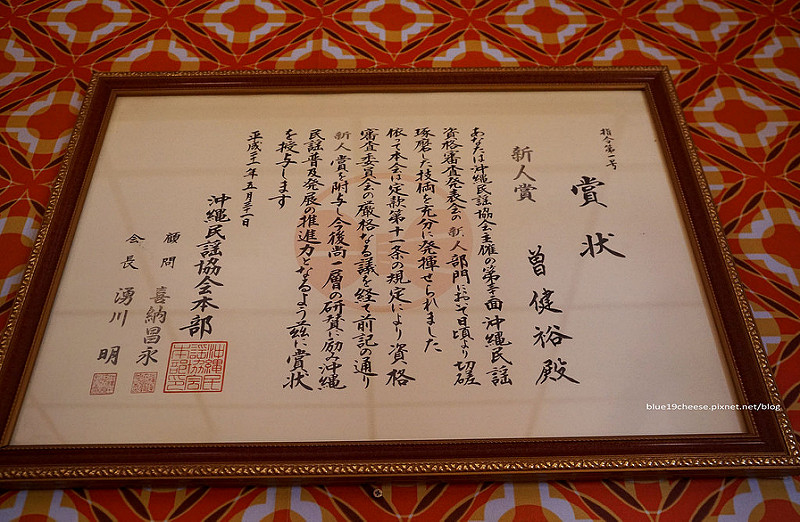 指令第一号
賞状
新人賞
曽健裕殿
あなたは沖縄民謡協会主催の第 回沖縄民謡
資格審査発表会の新人部門において日頃より切磋
琢磨した技倆を充分に発揮せられました
依て本会は定款第十一条の規定により資格
審査委員会の厳格なる議を経て前記の通り
新人賞を附与し今後尚一層の研賛に励み沖縄
民謡普及発展の推進力となるよう茲に賞状
を授与します
平成二十一年五月三十一日
沖縄民謡協会本部
顧問 喜納昌永
会長 湧川明
沖縄民
謡協会
本部印
blue19cheese.pixnet.net/blog